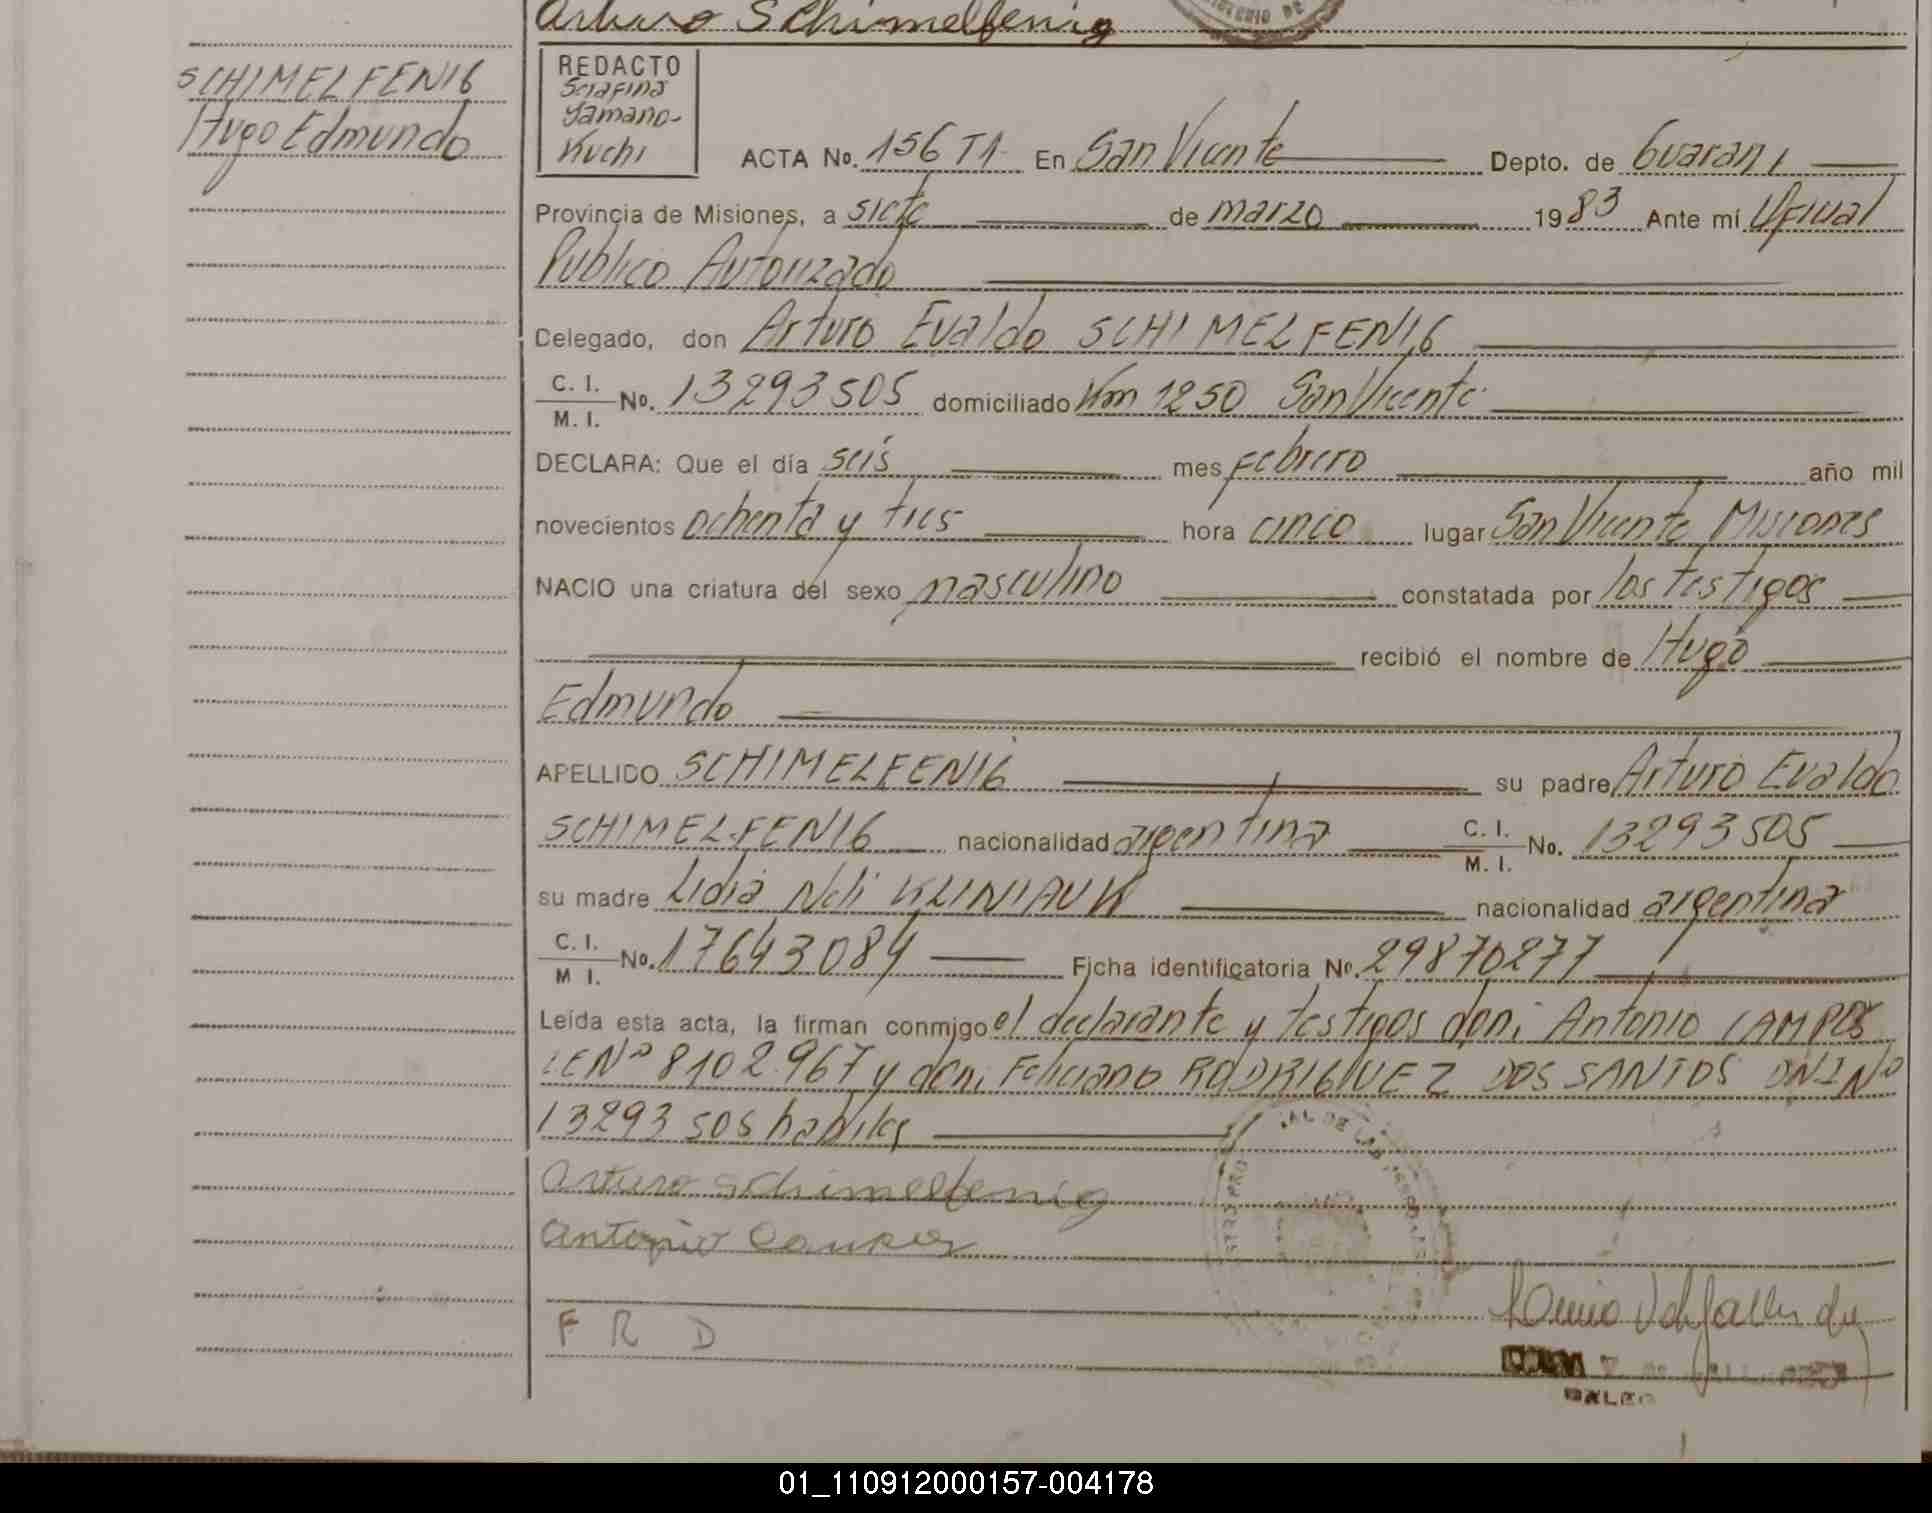 Arturo Schimelfenig
SCHIMELFENIG
Hugo Edmundo
REDACTO
Serafina
Yamano-
Kuchi
ACTA No. 156 T1 En San Vicente Depto. de Guarani
Provincia de Misiones, a siete de marzo 1983 Ante mí Oficial
Publico Autorizado
Delegado, don Arturo Evaldo SCHIMELFENIG
C. I.
M. I. No. 13293505 domiciliado Km 1250 San Vicente
DECLARA: Que el día seis mes febrero año mil
novecientos ochenta y tres hora cinco lugar San Vicente Misiones
NACIO una criatura del sexo masculino constatada por los testigos
recibió el nombre de Hugo
Edmundo
APELLIDO SCHIMELFENIG su padre Arturo Evaldo
SCHIMELFENIG nacionalidad argentina C. I. M. I. No. 13293505
su madre Lidia Neli KLINIAUK nacionalidad argentina
C. I.
M I. No. 17643084 Ficha identificatoria No. 29870277
Leída esta acta, la firman conmigo el declarante y testigos don: Antonio CAMPOS
LE Nº 8102.967 y don: Feliciano RODRIGUEZ DOS SANTOS DNI Nº
13293505 habiles
Arturo Schimelfenig
Antonio Campos
F R D
01_110912000157-004178